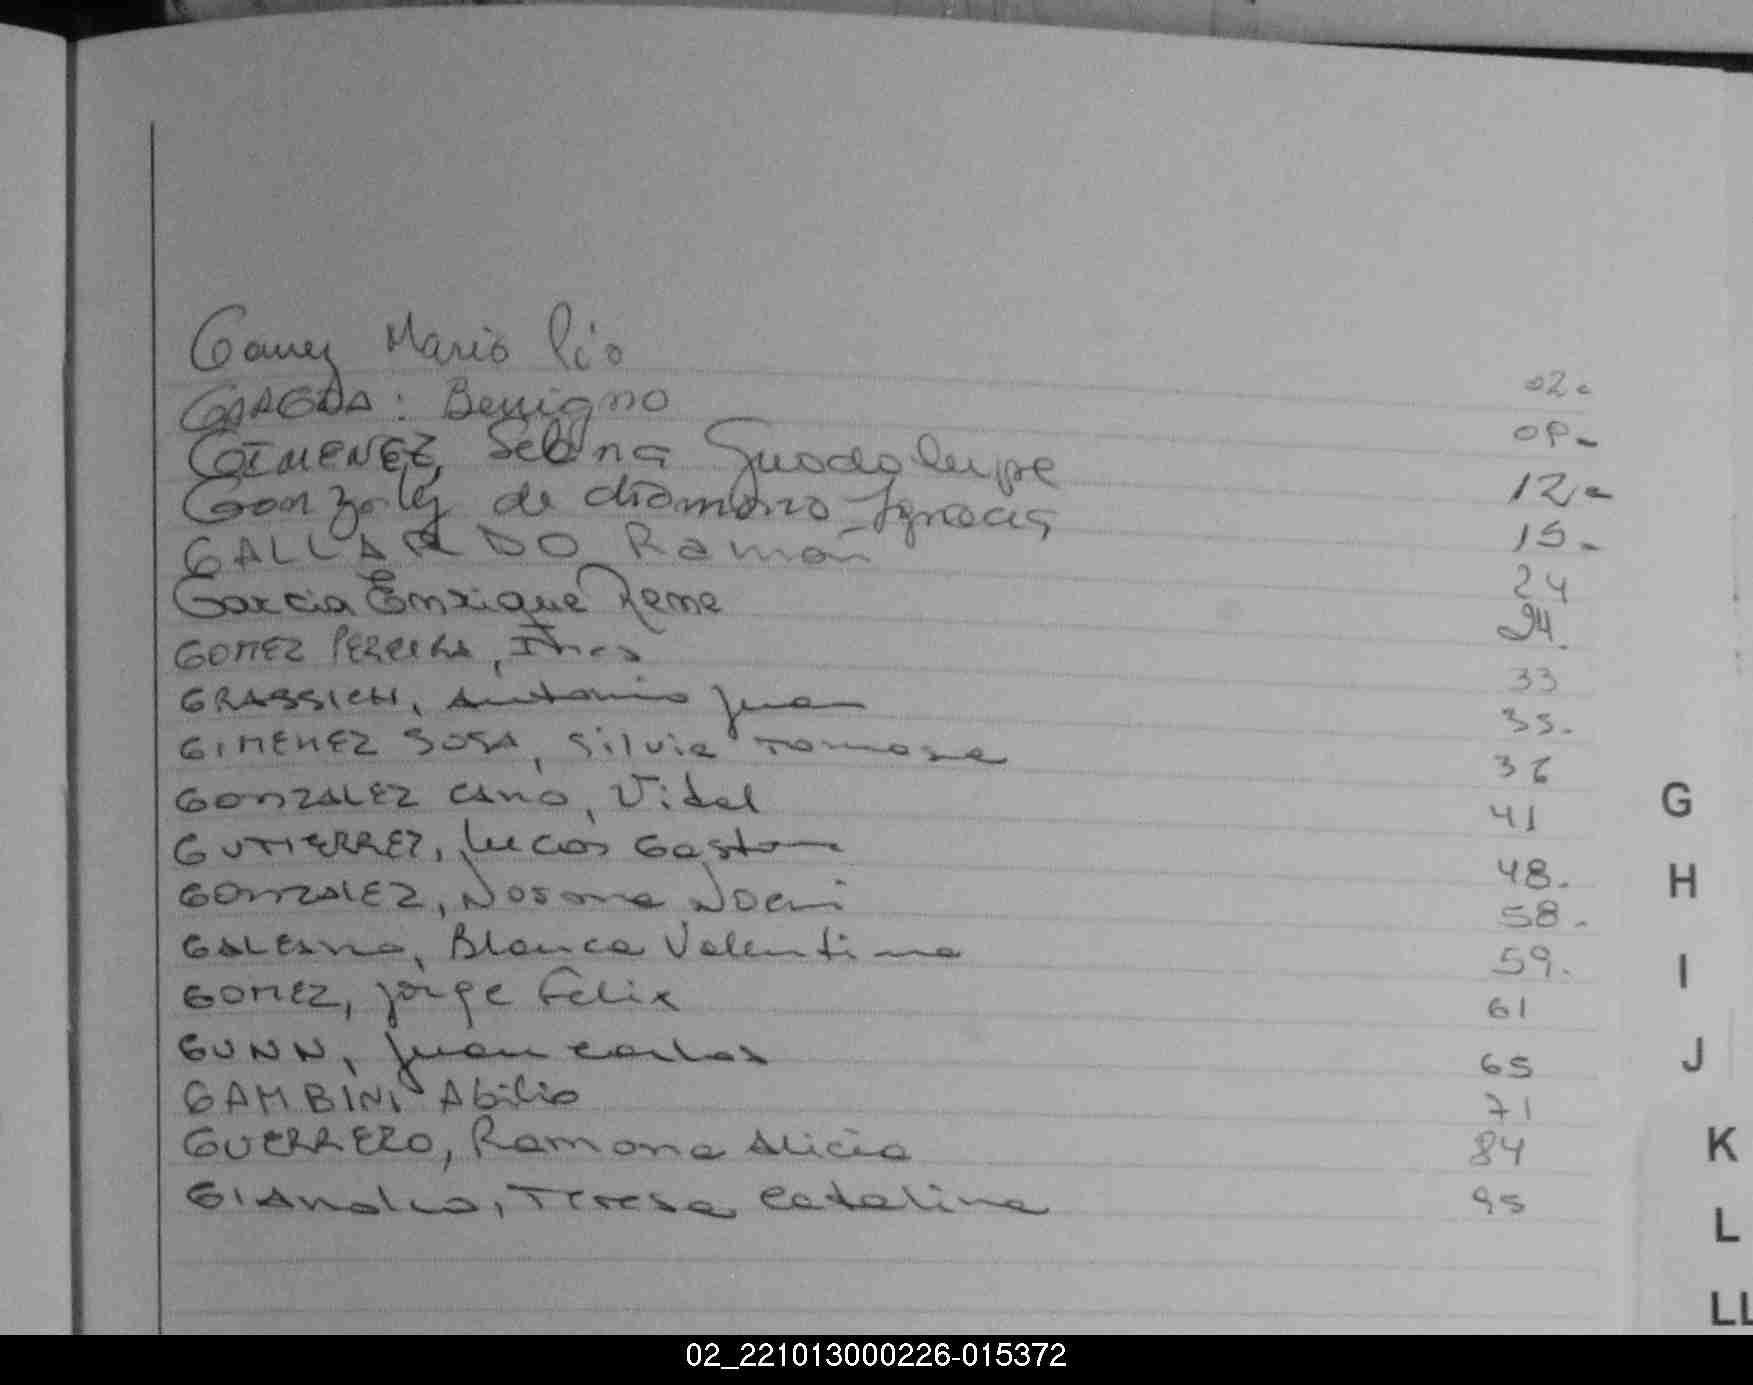 Gomez Mario Pio 02.
Benigno
GIMENEZ, Selina Guadalupe 12.-
Gonzalez de Ignacia 15.-
GALLARDO Ramón 24
Garcia Enrique Rene 24.
GOMEZ PEREIRA, Ines 33
GRASSICH, Antonio Juan 35.
GIMENEZ SOSA, Silvia Tomasa 36
GONZALEZ CANO, Vidal 41
GUTIERREZ, Lucas Gaston 48.
GONZALEZ, Noemi 58.
GALEANO, Blanca Valentina 59.
GOMEZ, Jorge Felix 61
GUNN, Juan Carlos 65
GAMBINI Abilio 71
GUERRERO, Ramona Alicia 84
Teresa Catalina 95
G
H
I
J
K
L
LL
02_221013000226-015372